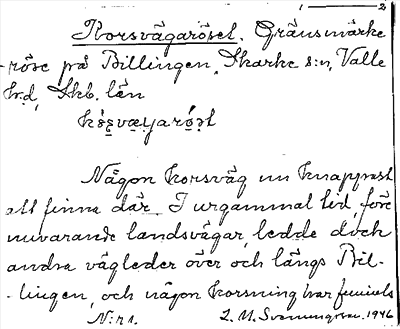 1 — 2
Korsvägaröset. Gränsmärke
-röse på Billingen, Skarke s:n, Valle
hrd, Skb. län

Någon korsväg nu knappast
att finna där. I urgammal tid, före
nuvarande landsvägar, ledde dock
andra vägleder över och längs Bil-
-lingen, och någon korsning har funnits
N:r 1. L. M. Svenungsson. 1946